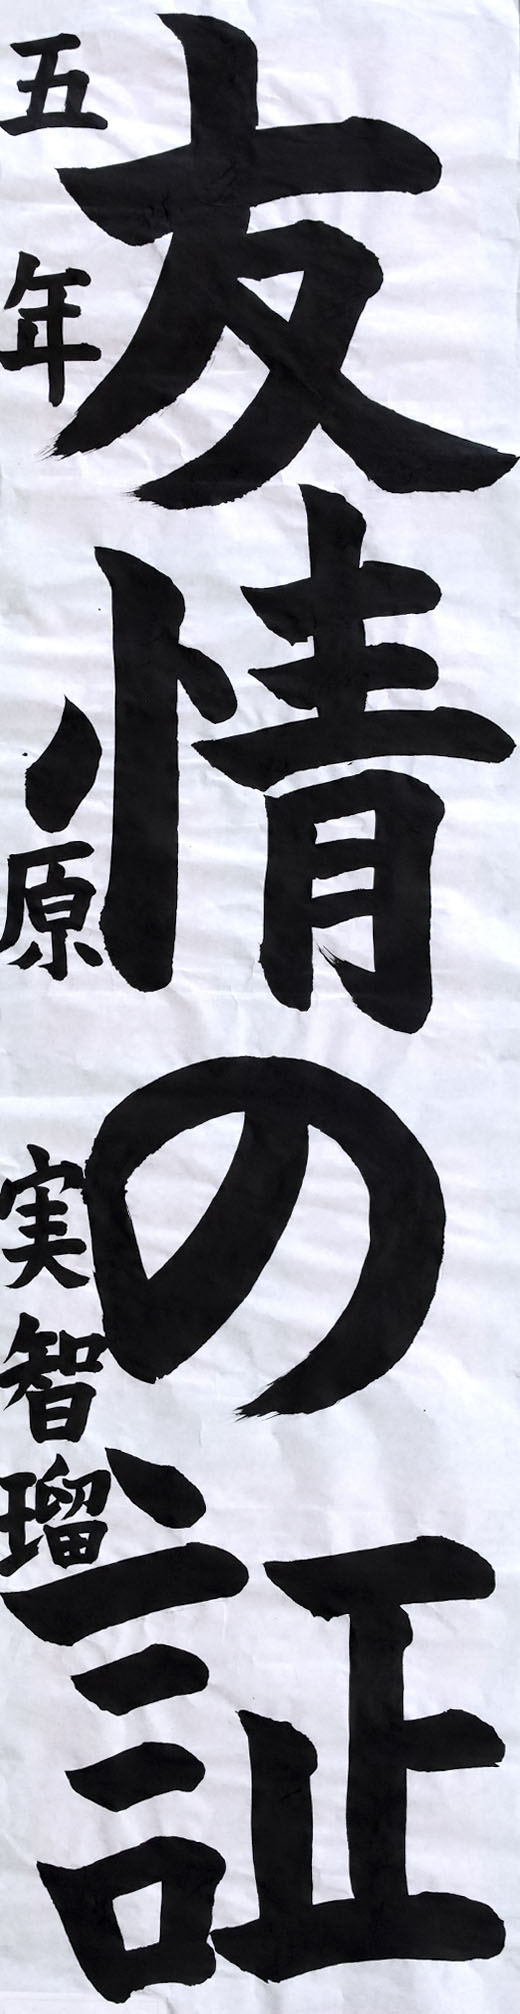 友情の証
五年 原 実智瑠